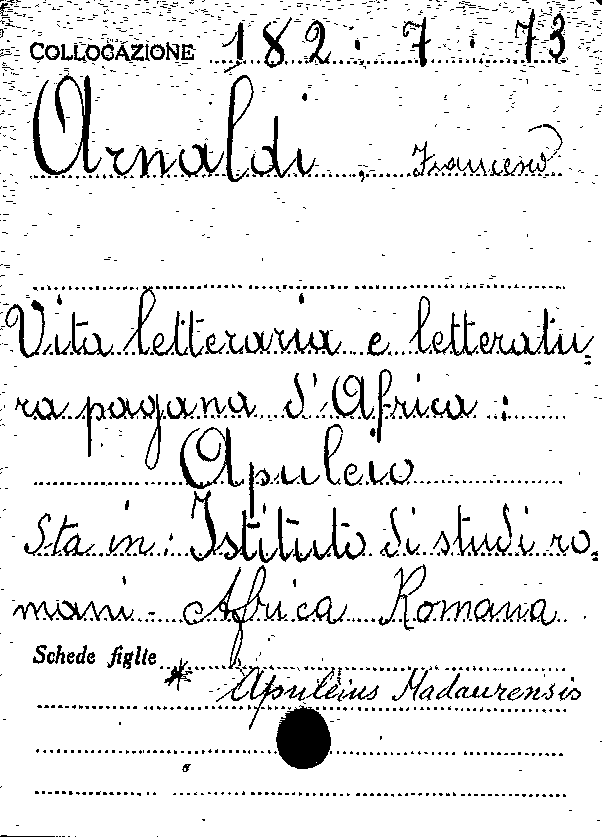 COLLOCAZIONE 182.7.73
Arnaldi, Francesco
Vita letteraria e letteratu-
ra pagana d'Africa:
Apuleio
Sta in: Istituto di studi ro-
mani - Africa Romana
Schede figlie
* Apuleius Madaurensis